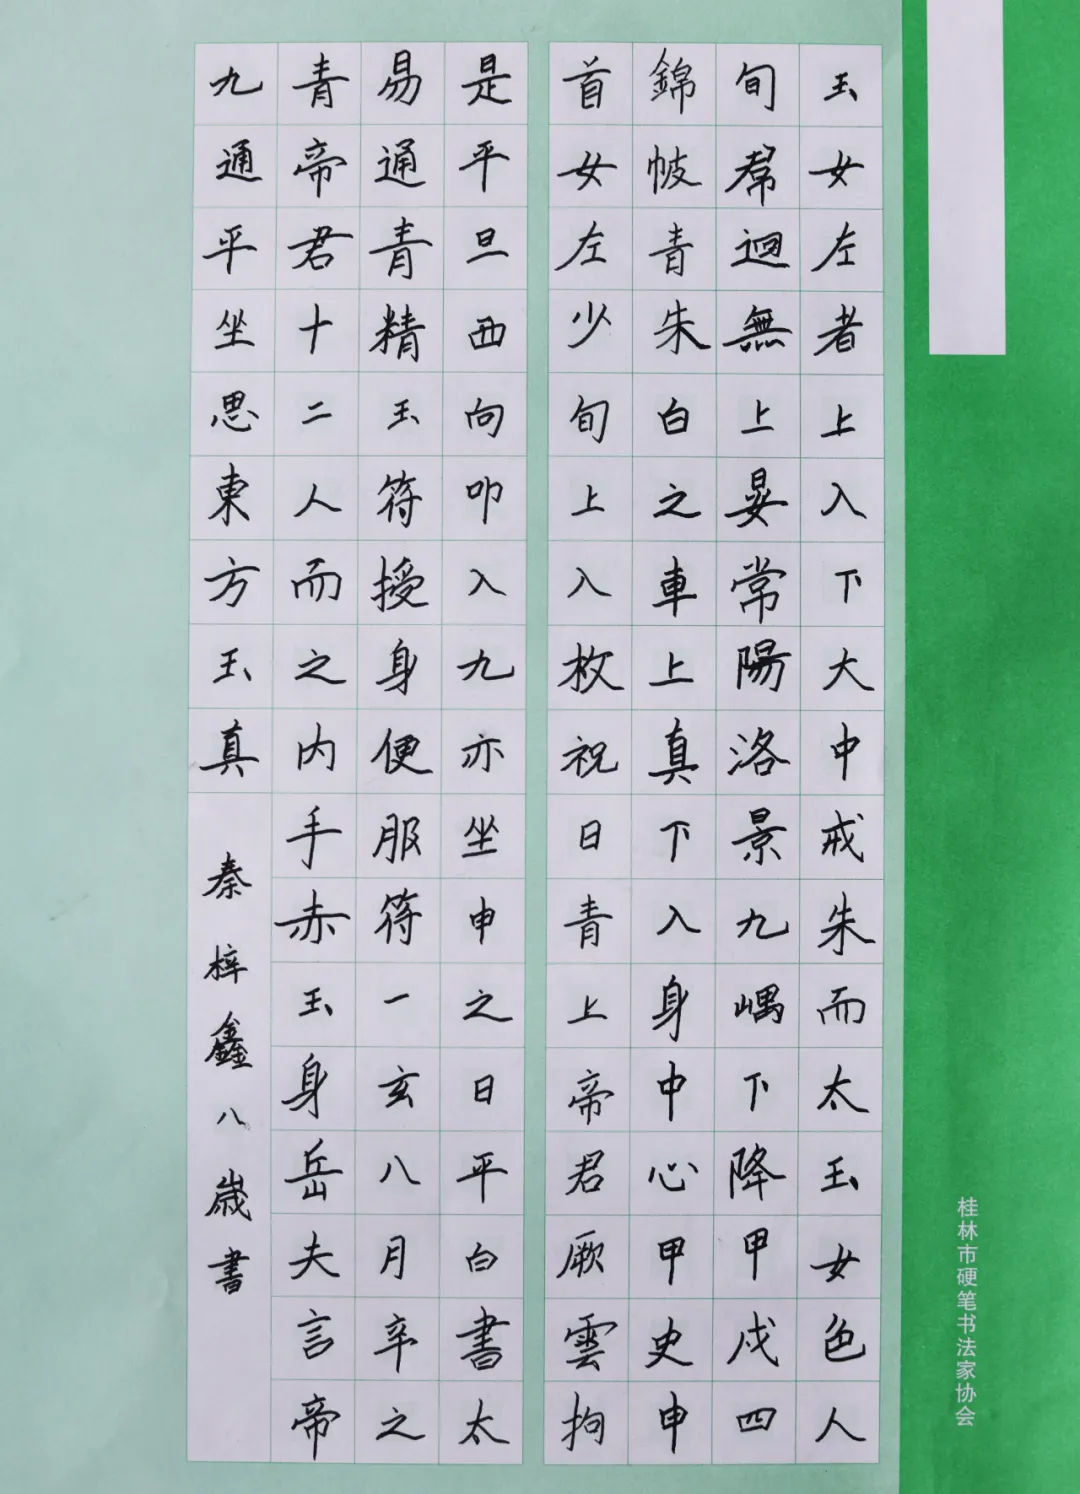 玉女左者上入下大中戒朱而太玉女色人
旬帬迴無上晏常陽洛景九嵎下降甲戌四
錦帔青朱白之車上真下入身中心甲史申
首女左少旬上入枚祝日青上帝君厥雲拘
是平旦西向叩入九亦坐申之日平白書太
易通青精玉符授身便服符一玄八月辛之
青帝君十二人而之內手赤玉身岳夫言帝
九通平坐思東方玉真
秦梓鑫八歲書
桂林市硬笔书法家协会